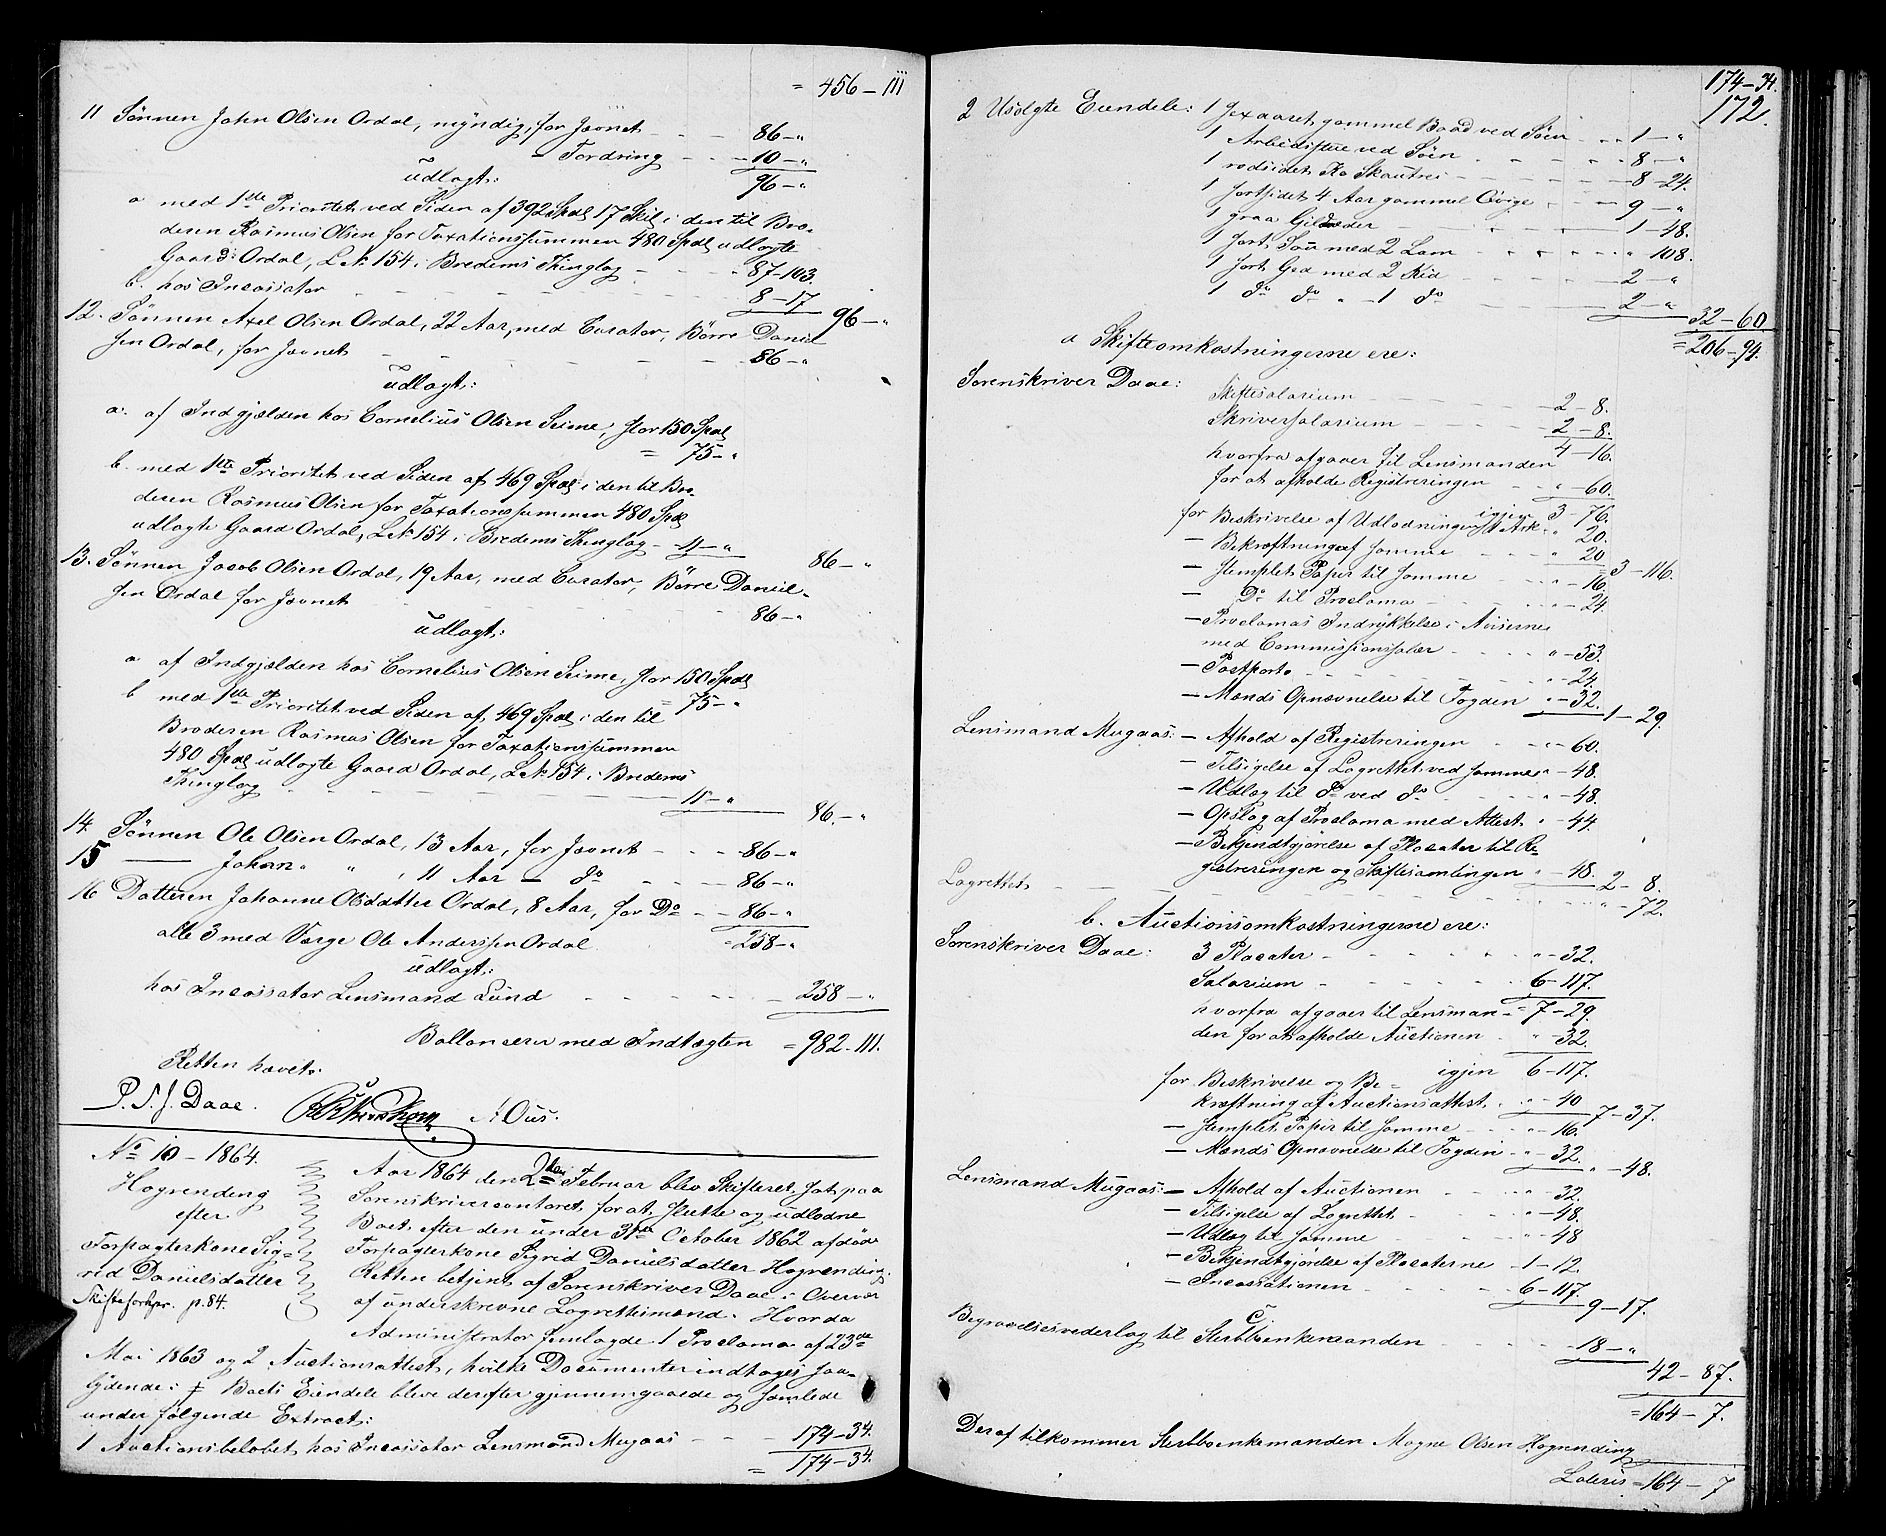 = 456 – 111
11 Sønnen John Olsen Ordal, myndig, for Jevnet - - - 86 – "
– Fordring - - - 10 – "
96 – "
udlagt:
a med 1ste Prioritet ved Siden af 392 Spdl 17 Skil i den til Bro-
deren Rasmus Olsen for Taxationssummen 480 Spdl udlagte
Gaard: Ordal, L.N. 154 i Bredems Thinglag - - - 87 – 103.
b. hos Incassator - - - 8 – 17
96 – "
12. Sønnen Axel Olsen Ordal, 22 Aar, med Curator, Børre Daniel
sen Ordal, for Jevnet - - - 86 – "
udlagt:
a. af Indgjælden hos Cornelius Olsen Seime, stor 150 Spdl
= 75 – "
b. med 1ste Prioritet ved Siden af 469 Spdl i den til Bro-
deren Rasmus Olsen for Taxationssummen 480 Spdl
udlagte Gaard Ordal, L.N. 154 i Bredems Thinglag – 11 – "
86 – "
13. Sønnen Jacob Olsen Ordal, 19 Aar, med Curator, Børre Daniel-
sen Ordal for Jevnet - - - 86 – "
udlagt:
a af Indgjælden hos Cornelius Olsen Seime, stor 150 Spdl
= 75 – "
b med 1ste Prioritet ved Siden af 469 Spdl i den til
Broderen Rasmus Olsen for Taxationssummen
480 Spdl udlagte Gaard Ordal, L.N. 154 i Bredems
Thinglag - - - 11 – "
86. – "
14. Sønnen Ole Olsen Ordal, 13 Aar, for Jevnet - - - 86 – "
15 —— Johan " " , 11 Aar – do - - - 86 – "
16 Datteren Johanne Olsdatter Ordal, 8 Aar, for Do - - 86 – "
alle 3 med Værge Ole Anderssen Ordal = 258 – "
udlagt:
hos Incassator Lensmand Lund - - - 258 – "
Ballancerer med Indtægten = 982 – 111.
Retten hævet.
P. N. J. Daae. A Ous.
No 10 – 1864.
Høgrending
efter
Forpagterkone Sig-
rid Danielsdatter
Skifteforhpr. p. 84.
Aar 1864 den 2den Februar blev Skifteret sat paa
Sorenskrivercontoret for at slutte og udlodne
Boet efter den under 31te October 1862 afdøde
Forpagterkone Sigrid Danielsdatter Høgrending.
Retten betjent af Sorenskriver Daae i Overvær
af underskrevne Lagrettemænd. Hvorda
Administrator fremlagde 1 Proclama af 23de
Mai 1863 og 2 Auctionsattest, hvilke Documenter indtages saa-
lydende: ‡ Boets Eiendele bleve derefter gjennemgaaede og samlede
under følgende Extract:
1 Auctionsbeløbet hos Incassator Lensmand Mugaas - - - 174 – 34.
= 174 – 34.
174 – 34.
172.
2 Usolgte Eiendele: 1 sexaaret gammel Baad ved Søen - - 1 – "
1 Arbeidsstue ved Søen - - - 8 – "
1 rødsidet Ko Skautrei - - - 8 – 24.
1 sortsidet 4 Aar gammel Qvige - - - 9 – "
1 graa Gildveder - - - 1 – 48.
1 sort Sau med 2 Lam - - - " 108.
1 sort Ged med 2 Kid - - - 2 – "
1 do do " – 1 do - - - 2 – "
32 – 60.
= 206 – 94.
a Skifteomkostningerne ere:
Sorenskriver Daae:
Skiftesalarium - - - 2 – 8.
Skriversalarium - - - 2 – 8.
4 – 16.
hvorfra afgaaer til Lensmanden
for at afholde Registreringen - - " – 60.
igjen 3 – 76.
for Beskrivelse af Udlodningen 1 Ark " 20.
– Bekræftning af samme - - - " 20
3 – 116.
– stemplet Papir til samme - - " – 16.
– Do til Proclama - - - " – 24
– Proclamas Indrykkelse i Aviserne
med Commissionssalær - - - " – 53.
– Postporto - - - " – 24.
– Mænds Opnævnelse til Fogden " – 32.
1 – 29.
Lensmand Mugaas: – Afhold af Registreringen - - " – 60.
– Tilsigelse af Lagrettet ved samme " – 48.
– Udlæg til do ved do - - - " – 48.
– Opslag af Proclama med Attest " – 44.
– Bekjendtgjørelse af Placater til Re-
gistreringen og Skiftesamlingen " – 48.
2 – 8.
Lagrettet - - - " – 72.
b. Auctionsomkostningerne ere:
Sorenskriver Daae:
3 Placater - - - " – 32.
Salarium - - - 6 – 117.
hvorfra afgaaer til Lensman- = 7 – 29.
den for at afholde Auctionen - " – 32.
igjen 6 – 117.
for Beskrivelse og Be-
kræftning af Auctionsattest " – 40
7 – 37.
– stemplet Papir til samme - - " – 16.
– Mænds Opnævnelse til Fogden " – 32.
" – 48.
Lensmand Mugaas: – Afhold af Auctionen - - - " – 32.
– Tilsigelse af Lagrettet - - " – 48.
– Udlæg til samme - - " – 48
– Bekjendtgjørelse af Placaterne – 1 – 12.
– Incassationen - - - 6 – 117.
9 – 17.
c.
Begravelsesvederlag til Sterbboenkemanden - - - 18 – "
42 – 87.
= 164 – 7.
Deraf tilkommer Sterbboenkemanden Mogne Olsen Høgrending
Lateris = 164 – 7